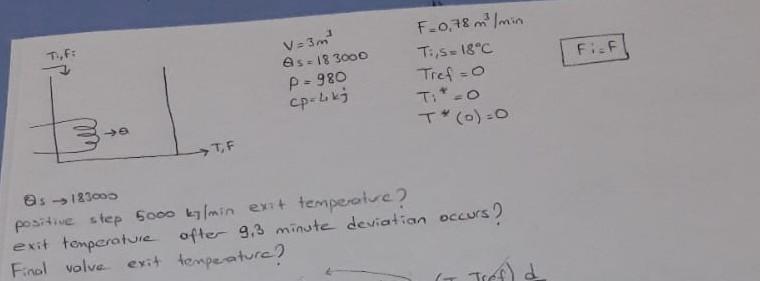 Ti, Fi
→ Q
T, F
V = 3m³
Qs = 183000
ρ = 980
Cp = 4 kj
F = 0,78 m³/min
Ti,s = 18°C
Tref = 0
Ti* = 0
T*(0) = 0
Fi = F
Qs → 183000
positive step 5000 kj/min exit temperature?
exit temperature after 9,3 minute deviation occurs?
Final valve exit temperature?
(T Tref) d